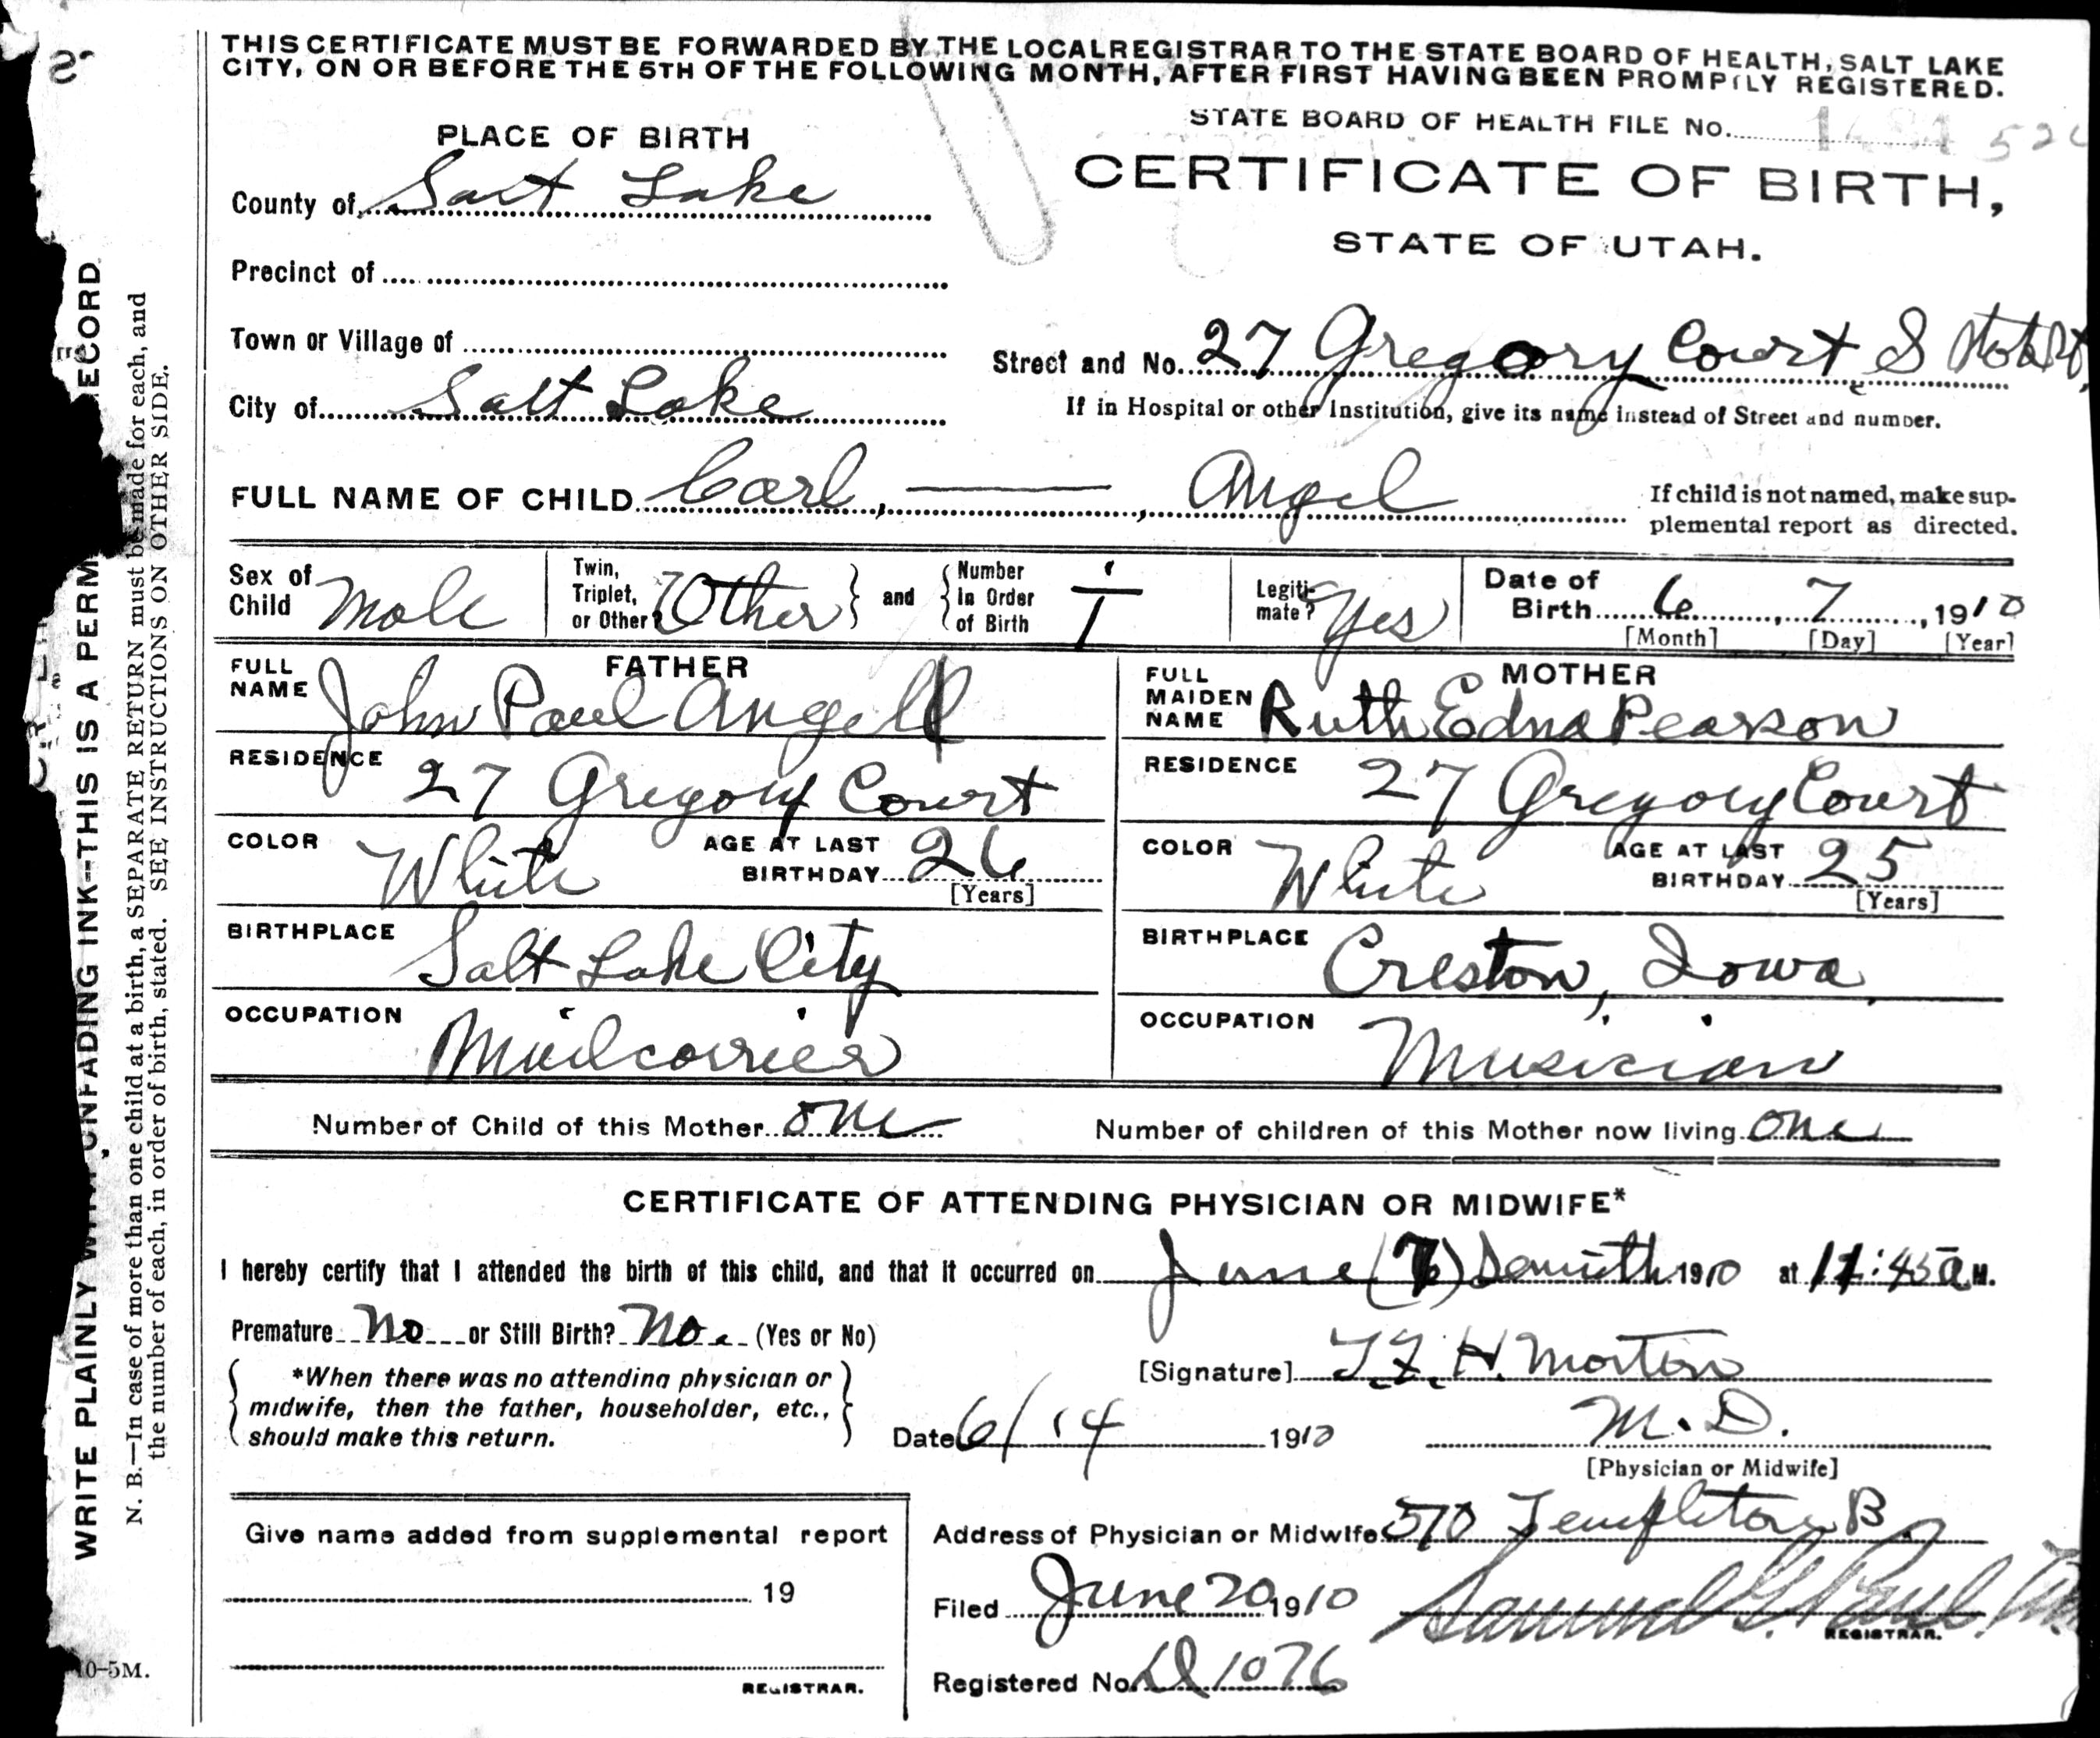 THIS CERTIFICATE MUST BE FORWARDED BY THE LOCAL REGISTRAR TO THE STATE BOARD OF HEALTH, SALT LAKE
CITY, ON OR BEFORE THE 5TH OF THE FOLLOWING MONTH, AFTER FIRST HAVING BEEN PROMPTLY REGISTERED.
STATE BOARD OF HEALTH FILE No.
PLACE OF BIRTH
CERTIFICATE OF BIRTH,
STATE OF UTAH.
County of Salt Lake
Precinct of
Town or Village of
Street and No. 27 Gregory Court S
City of Salt Lake
If in Hospital or other Institution, give its name instead of Street and number.
FULL NAME OF CHILD Carl, — , Angel
If child is not named, make sup-
plemental report as directed.
Sex of Child Male
Twin, Triplet, or Other? Other and Number In Order of Birth 1
Legiti-mate? Yes
Date of Birth 6, 7, 1910
[Month] [Day] [Year]
FATHER
FULL NAME John Paul Angell
RESIDENCE 27 Gregory Court
COLOR White AGE AT LAST BIRTHDAY 26
[Years]
BIRTHPLACE Salt Lake City
OCCUPATION Mailcarrier
MOTHER
FULL MAIDEN NAME Ruth Edna Pearson
RESIDENCE 27 Gregory Court
COLOR White AGE AT LAST BIRTHDAY 25
[Years]
BIRTHPLACE Creston, Iowa
OCCUPATION Musician
Number of Child of this Mother one Number of children of this Mother now living one
CERTIFICATE OF ATTENDING PHYSICIAN OR MIDWIFE*
I hereby certify that I attended the birth of this child, and that it occurred on June (7) 1910 at 11:45 a M.
Premature No or Still Birth? No. (Yes or No)
*When there was no attending physician or
midwife, then the father, householder, etc.,
should make this return.
[Signature] H. Morton
M. D.
[Physician or Midwife]
Date 6/14 1910
Give name added from supplemental report
19
REGISTRAR.
Address of Physician or Midwife 570 Templeton B
Filed June 20 1910 Samuel G. Paul
REGISTRAR.
Registered No. 1076
WRITE PLAINLY WITH UNFADING INK--THIS IS A PERM ECORD
N. B.—In case of more than one child at a birth, a SEPARATE RETURN must be made for each, and
the number of each, in order of birth, stated. SEE INSTRUCTIONS ON OTHER SIDE.
0-5M.